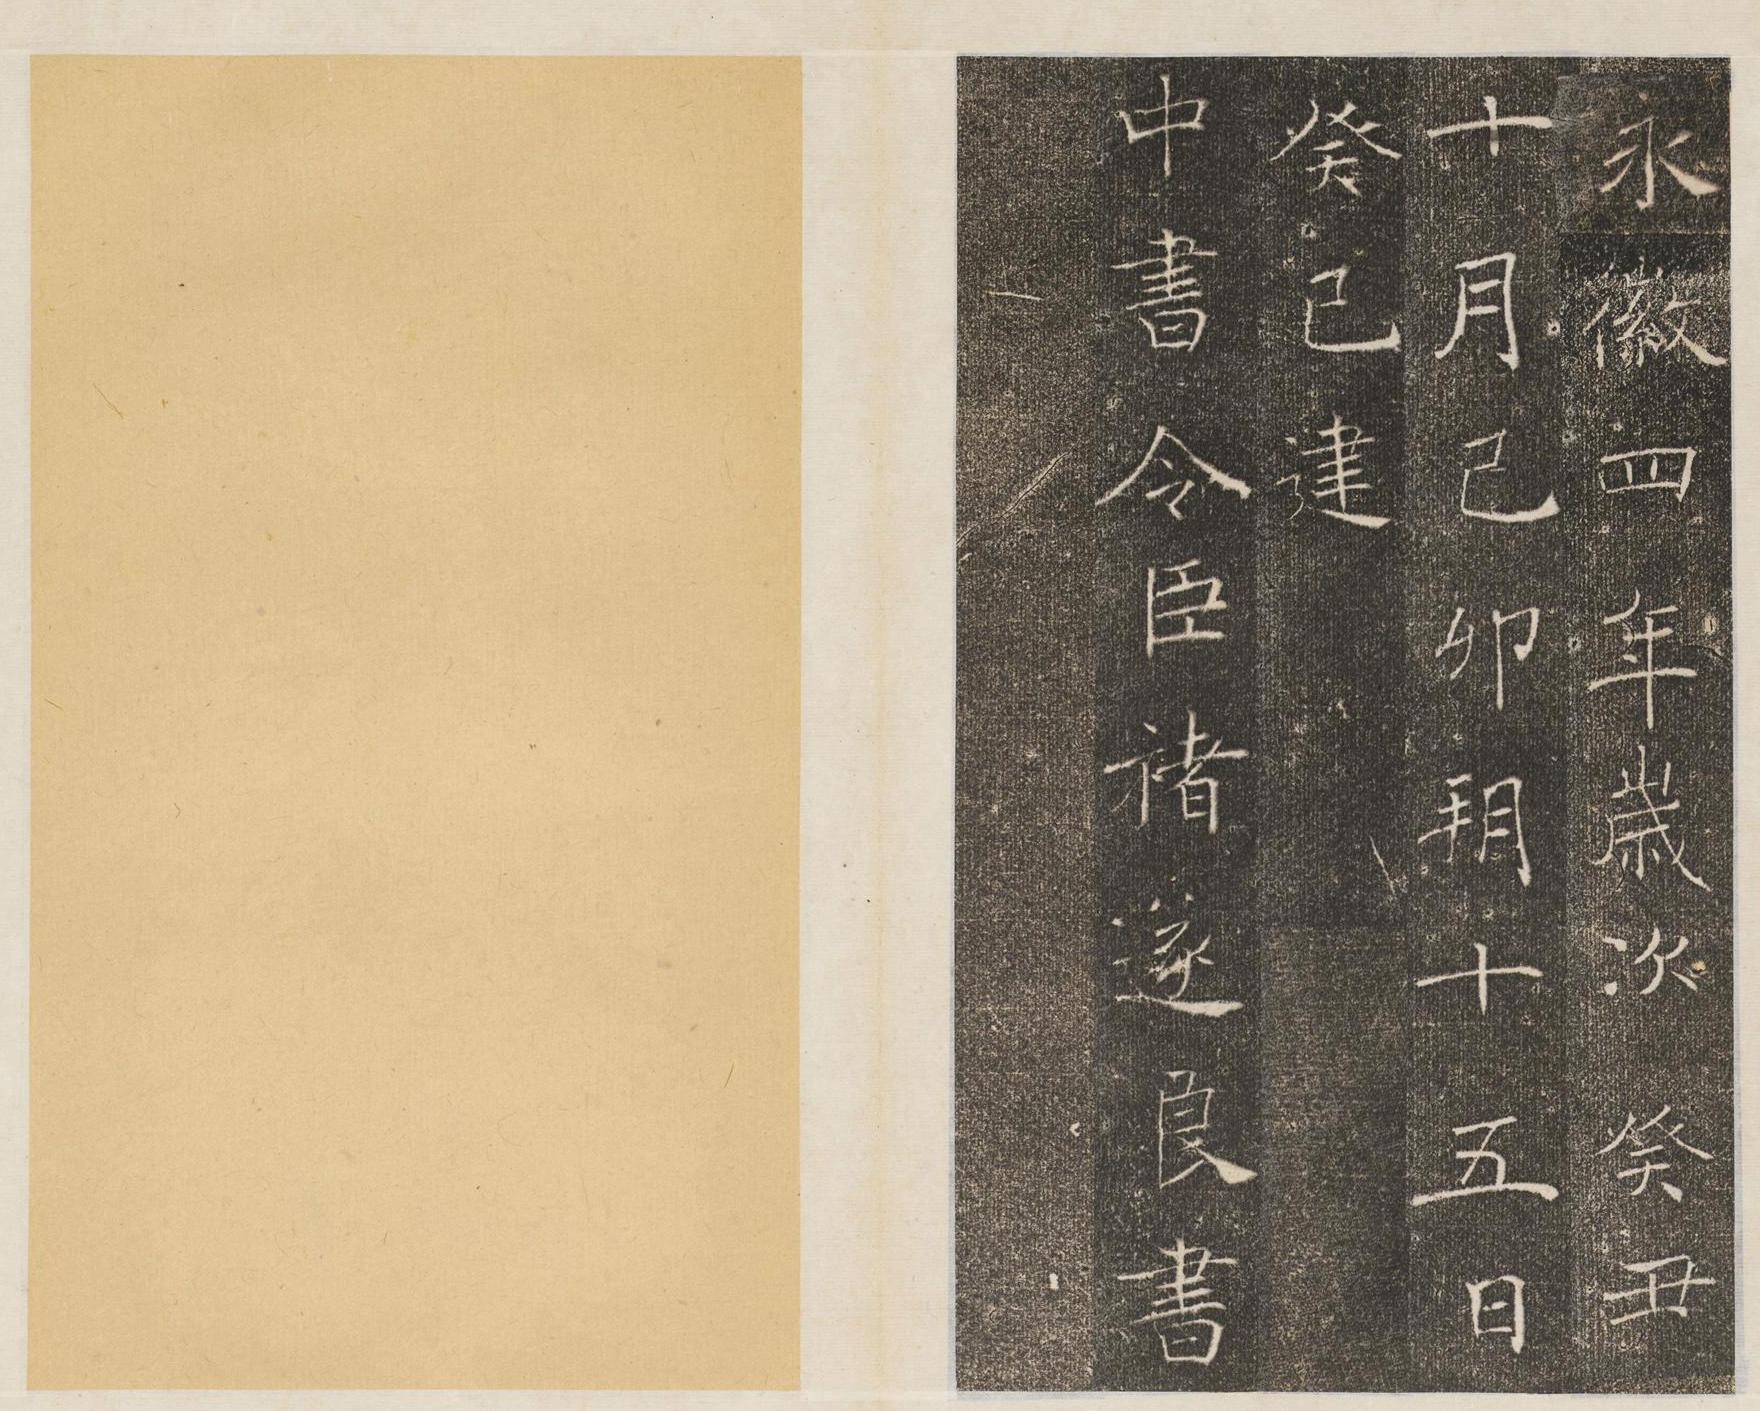 永徽四年歲次癸丑
十月己卯朔十五日
癸巳建
中書令臣褚遂良書